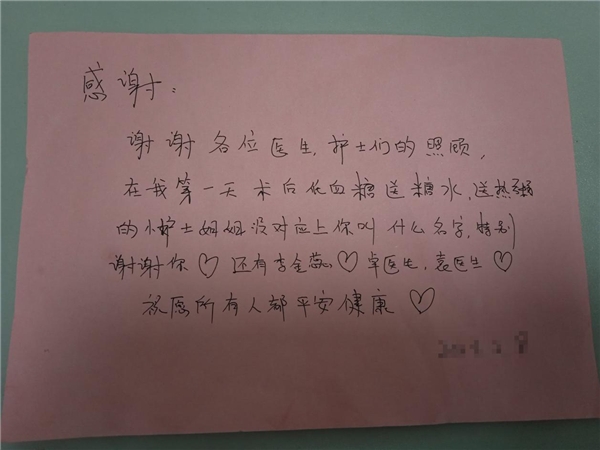 感谢:
谢谢各位医生,护士们的照顾,
在我第一天术后低血糖送糖水,送热粥
的小护士姐姐没对应上你叫什么名字,特别
谢谢你♡还有李金蕊♡卓医生,袁医生♡
祝愿所有人都平安健康♡